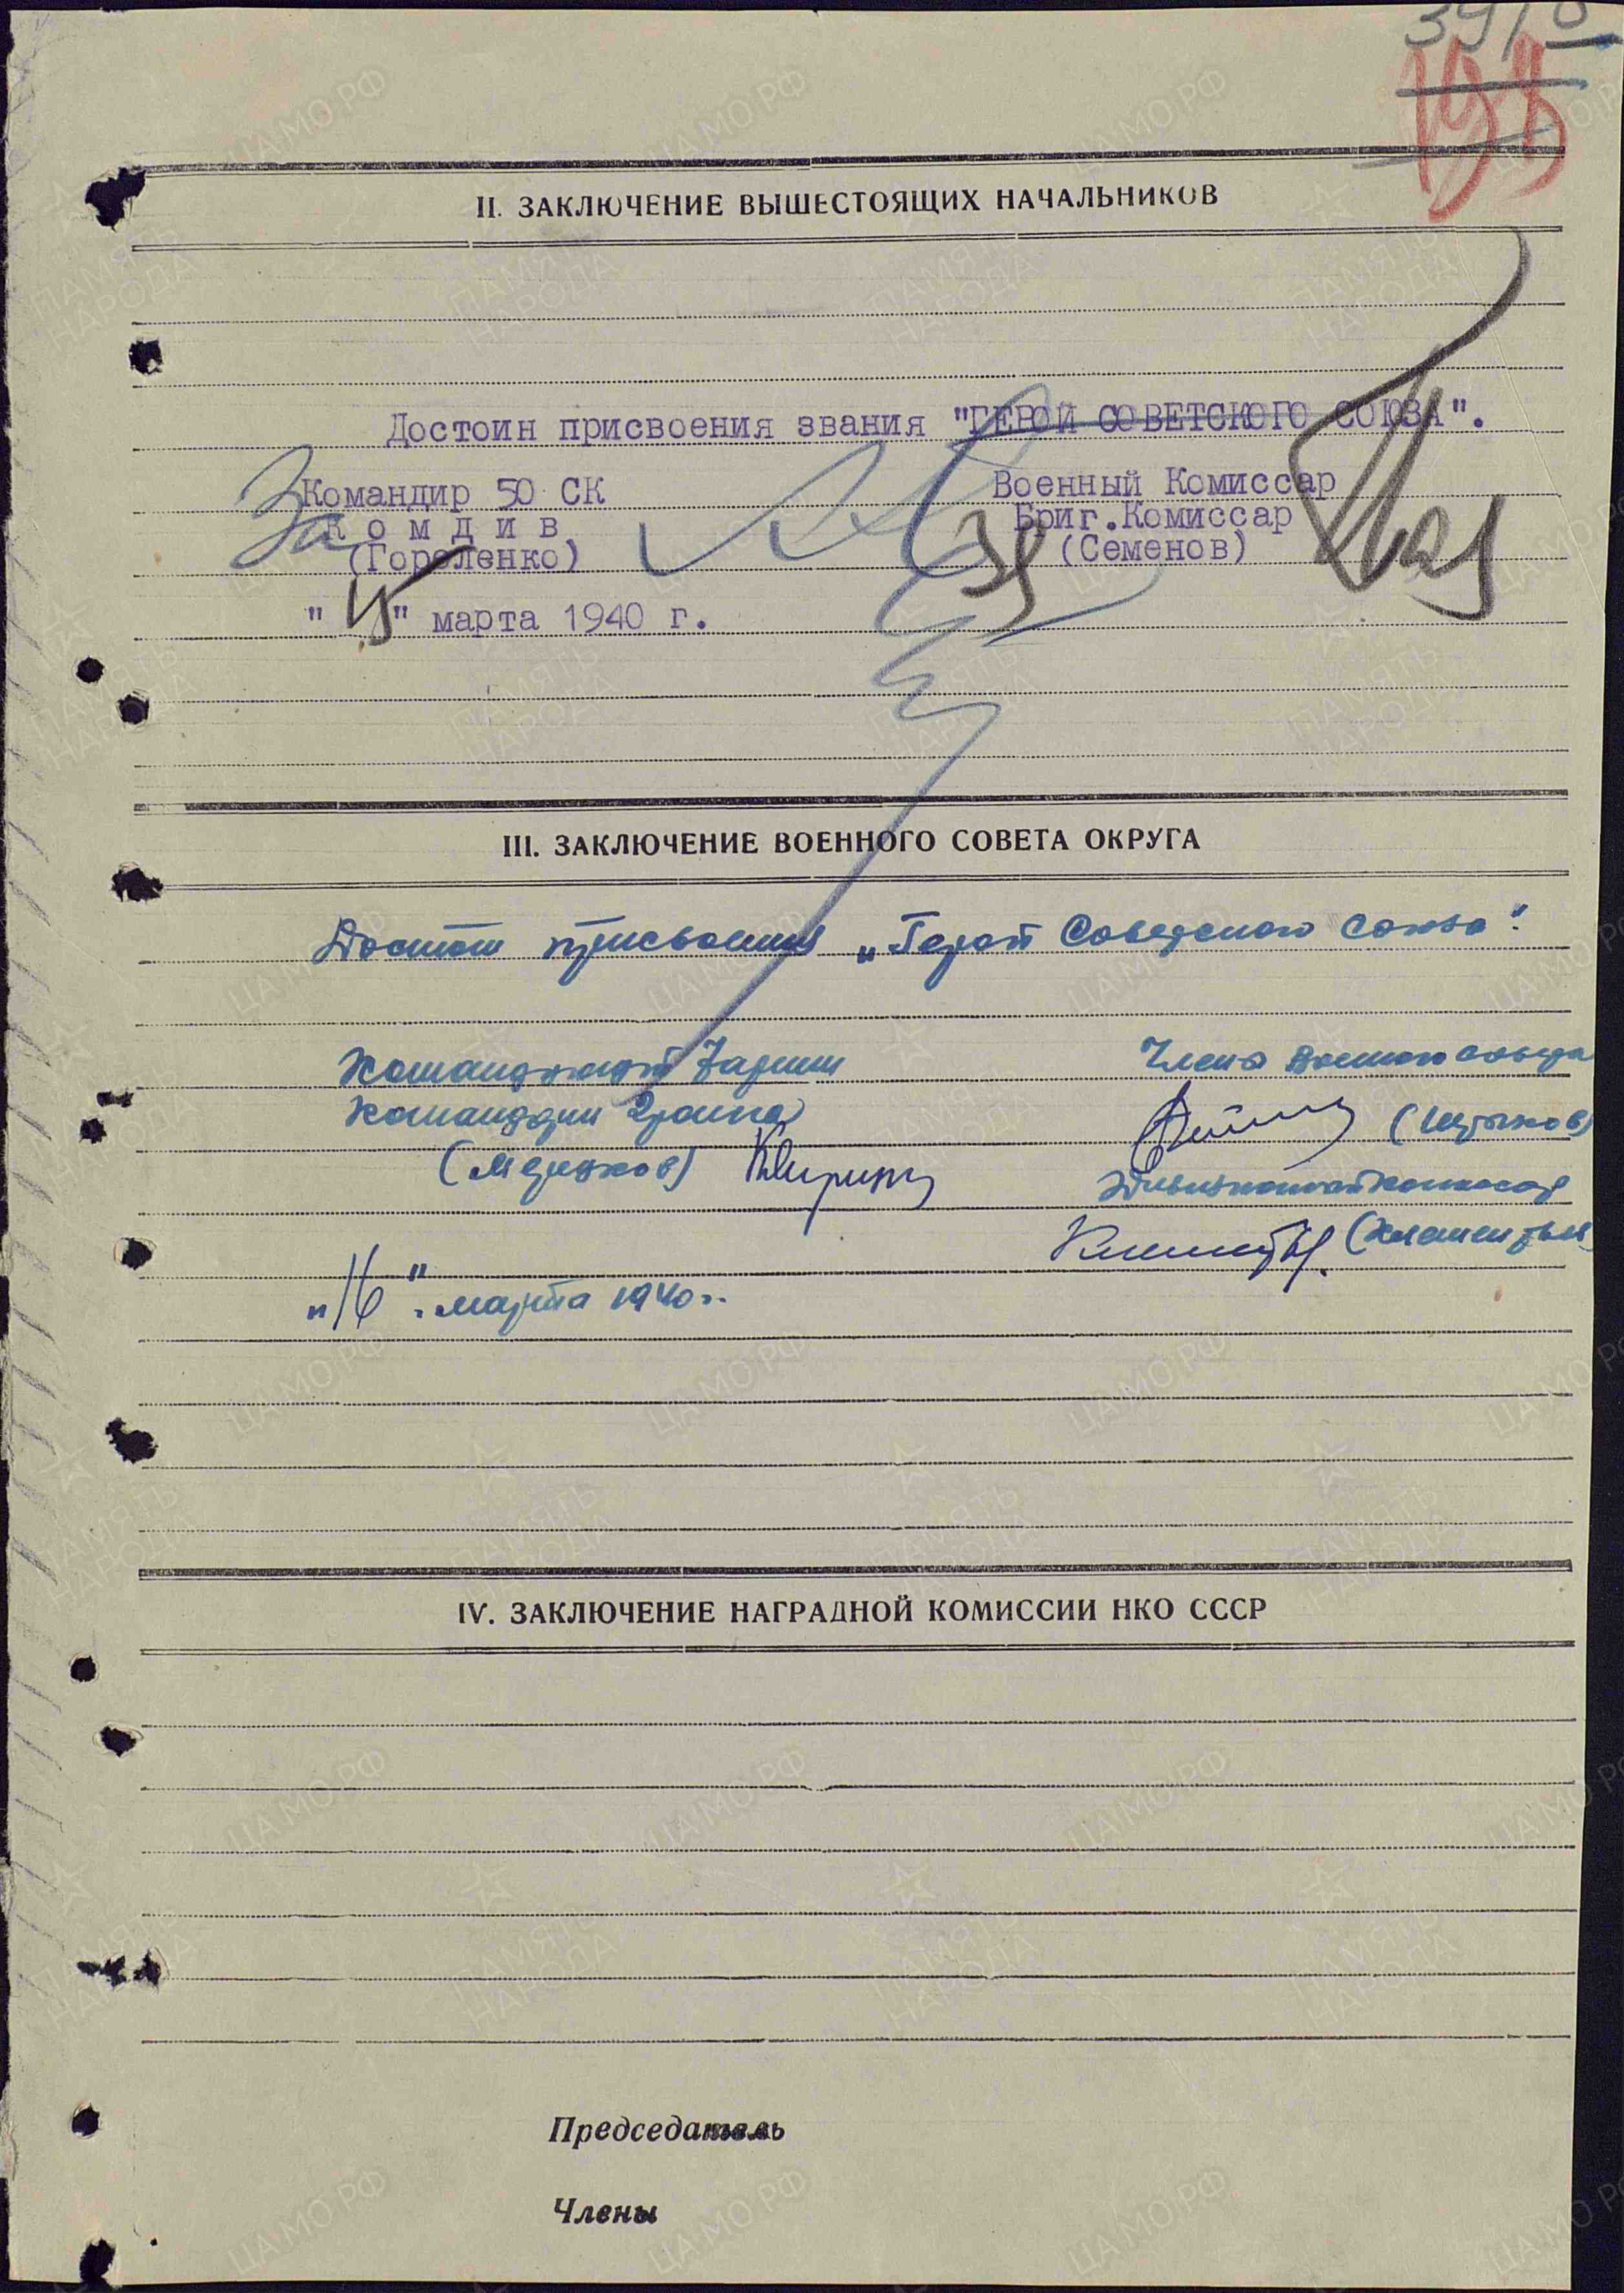 II. ЗАКЛЮЧЕНИЕ ВЫШЕСТОЯЩИХ НАЧАЛЬНИКОВ
Достоин присвоения звания "ГЕРОЙ СОВЕТСКОГО СОЮЗА".
За Командир 50 СК
Военный Комиссар
Комдив
Бриг.Комиссар
(Гореленко)
(Семенов)
"15" марта 1940 г.
III. ЗАКЛЮЧЕНИЕ ВОЕННОГО СОВЕТА ОКРУГА
Достоин присвоения „Герой Советского Союза".
Командующий Армии
Члены Военного Совета
Командарм 2 ранга
(Штыков)
(Мерецков)
Дивизионный комиссар
"16" марта 1940 г.
IV. ЗАКЛЮЧЕНИЕ НАГРАДНОЙ КОМИССИИ НКО СССР
Председатель
Члены
ПАМЯТЬ НАРОДА
ЦА МО РФ